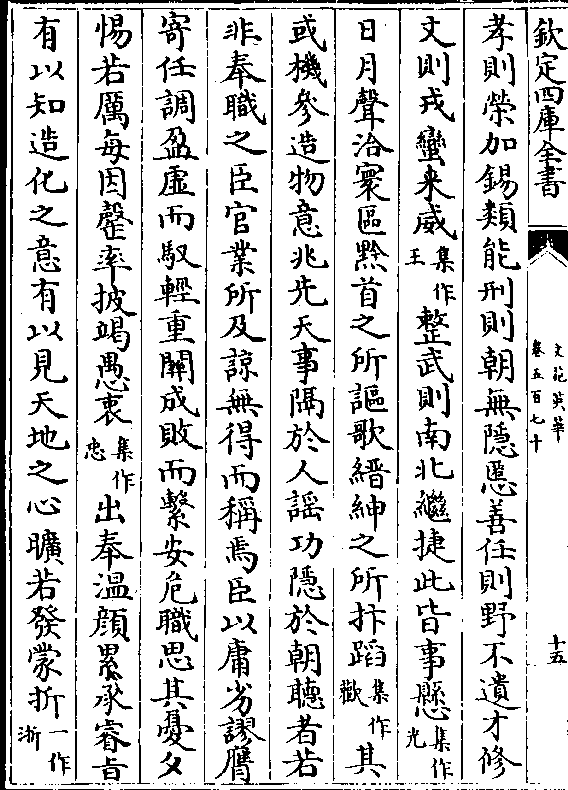 欽定四庫全書
文苑英華
卷五百七十
十五
孝則榮加錫類能刑則朝無隱慝善任則野不遺才修
文則戎蠻来威集作王整武則南北繼捷此皆事懸集作光
日月聲洽寰區黔首之所謳歌縉紳之所抃蹈集作歡其
或機參造物意兆先天事隔於人謡功隱於朝聽者若
非奉職之臣官業所及諒無得而稱焉臣以庸劣謬膺
寄任調盈虛而馭輕重闗成敗而繫安危職思其憂夕
惕若厲每因罄率披竭愚衷集作忠出奉溫顔累承睿旨
有以知造化之意有以見天地之心曠若發蒙折一作淅